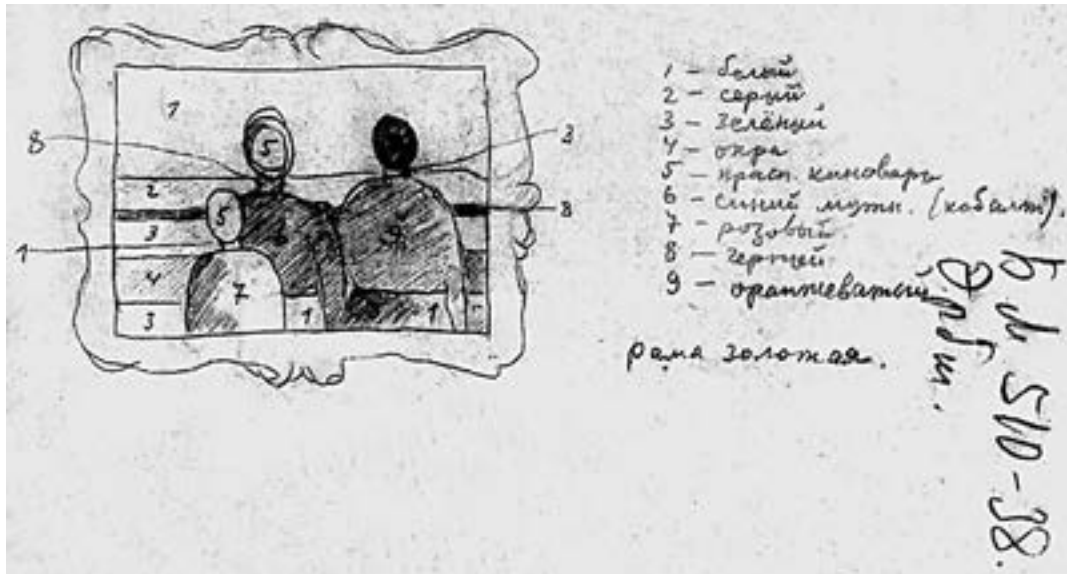 1
8
5
3
2
5
8
3
6
9
1
4
7
3
1
1
1 – белый
2 – серый
3 – зелёный
4 – охра
5 – красн. киноварь
6 – синий мутн. (кобальт).
7 – розовый
8 – черный
9 – оранжеватый
рама золотая.
510-38.